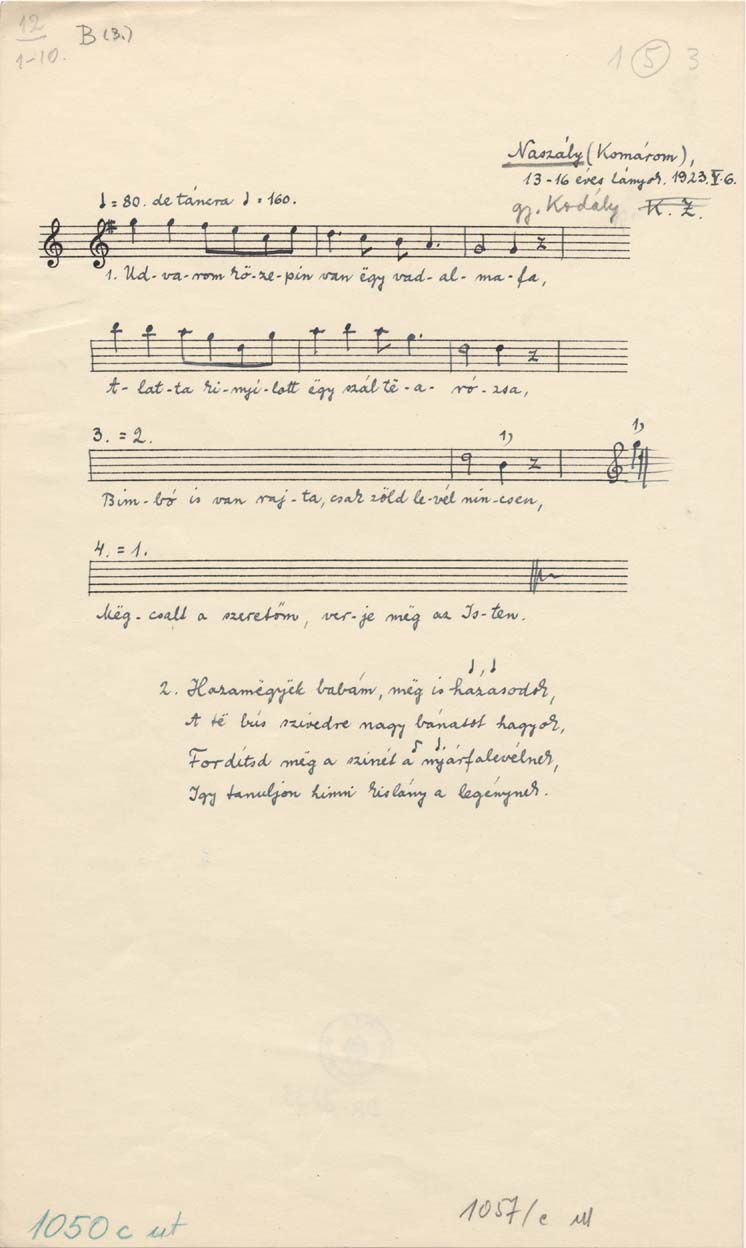 12
1-10.
B (3.)
1 5 3
Naszály (Komárom),
13-16 éves lányok. 1923.V.6.
gy. Kodály K. Z.
♩ = 80. de táncra ♩ = 160.
1. Ud-va-rom kö-ze-pin van ëgy vad-al-ma-fa,
A-lat-ta ki-nyi-lott ëgy szál të-a-ró-zsa,
3. = 2.
1)
1)
Bim-bó is van raj-ta, csak zöld le-vél nin-csen,
4. = 1.
Mëg-csalt a szeretőm, ver-je mëg az Is-ten.
2. Hazamëgyëk babám, mëg is házasodok,
A të bús szivedre nagy bánatot hagyok,
Fordítsd mëg a szinét a nyárfalevélnek,
Igy tanuljon hinni kislány a legénynek.
1050 c ut
1057/c